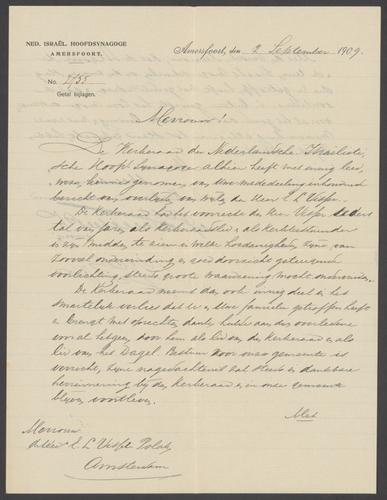 NED. ISRAËL. HOOFDSYNAGOGE
AMERSFOORT.
Amersfoort, den 2 September 1909.
No. 2/55
Getal bijlagen.
Mevrouw!
De Kerkeraad der Nederlandsche Israëliti-
sche Hoofd Synagoge alhier heeft met innig leed,
wezen, kennis genomen, van Uwe mededeeling inhoudende
bericht van overlijden van den Heer E L Uspe.
De Kerkeraad had het voorrecht den Heer
tal van jaren als Kerkeraadslid, als kerkbestuurder
in zijn midden te zien en welke hoedanigheden van
zooveel ondervinding en goed doorzicht getuigende
voorlichting steeds groote waardeering mocht
De Kerkeraad neemt dan ook innig deel in het
smartelijk verlies dat U en Uwe familie getroffen heeft
en brengt met oprechten dank hulde aan des overledene
voor al hetgeen door hem als lid van den Kerkeraad en als
lid van het Dagel. Bestuur door onze gemeente is
verricht, zijne nagedachtenis zal steeds in dankbare
herinnering bij den Kerkeraad en in onze gemeente
blijven voortleven.
Met
Mevrouw
de Wed. E. L Uspe Polak
Amsterdam